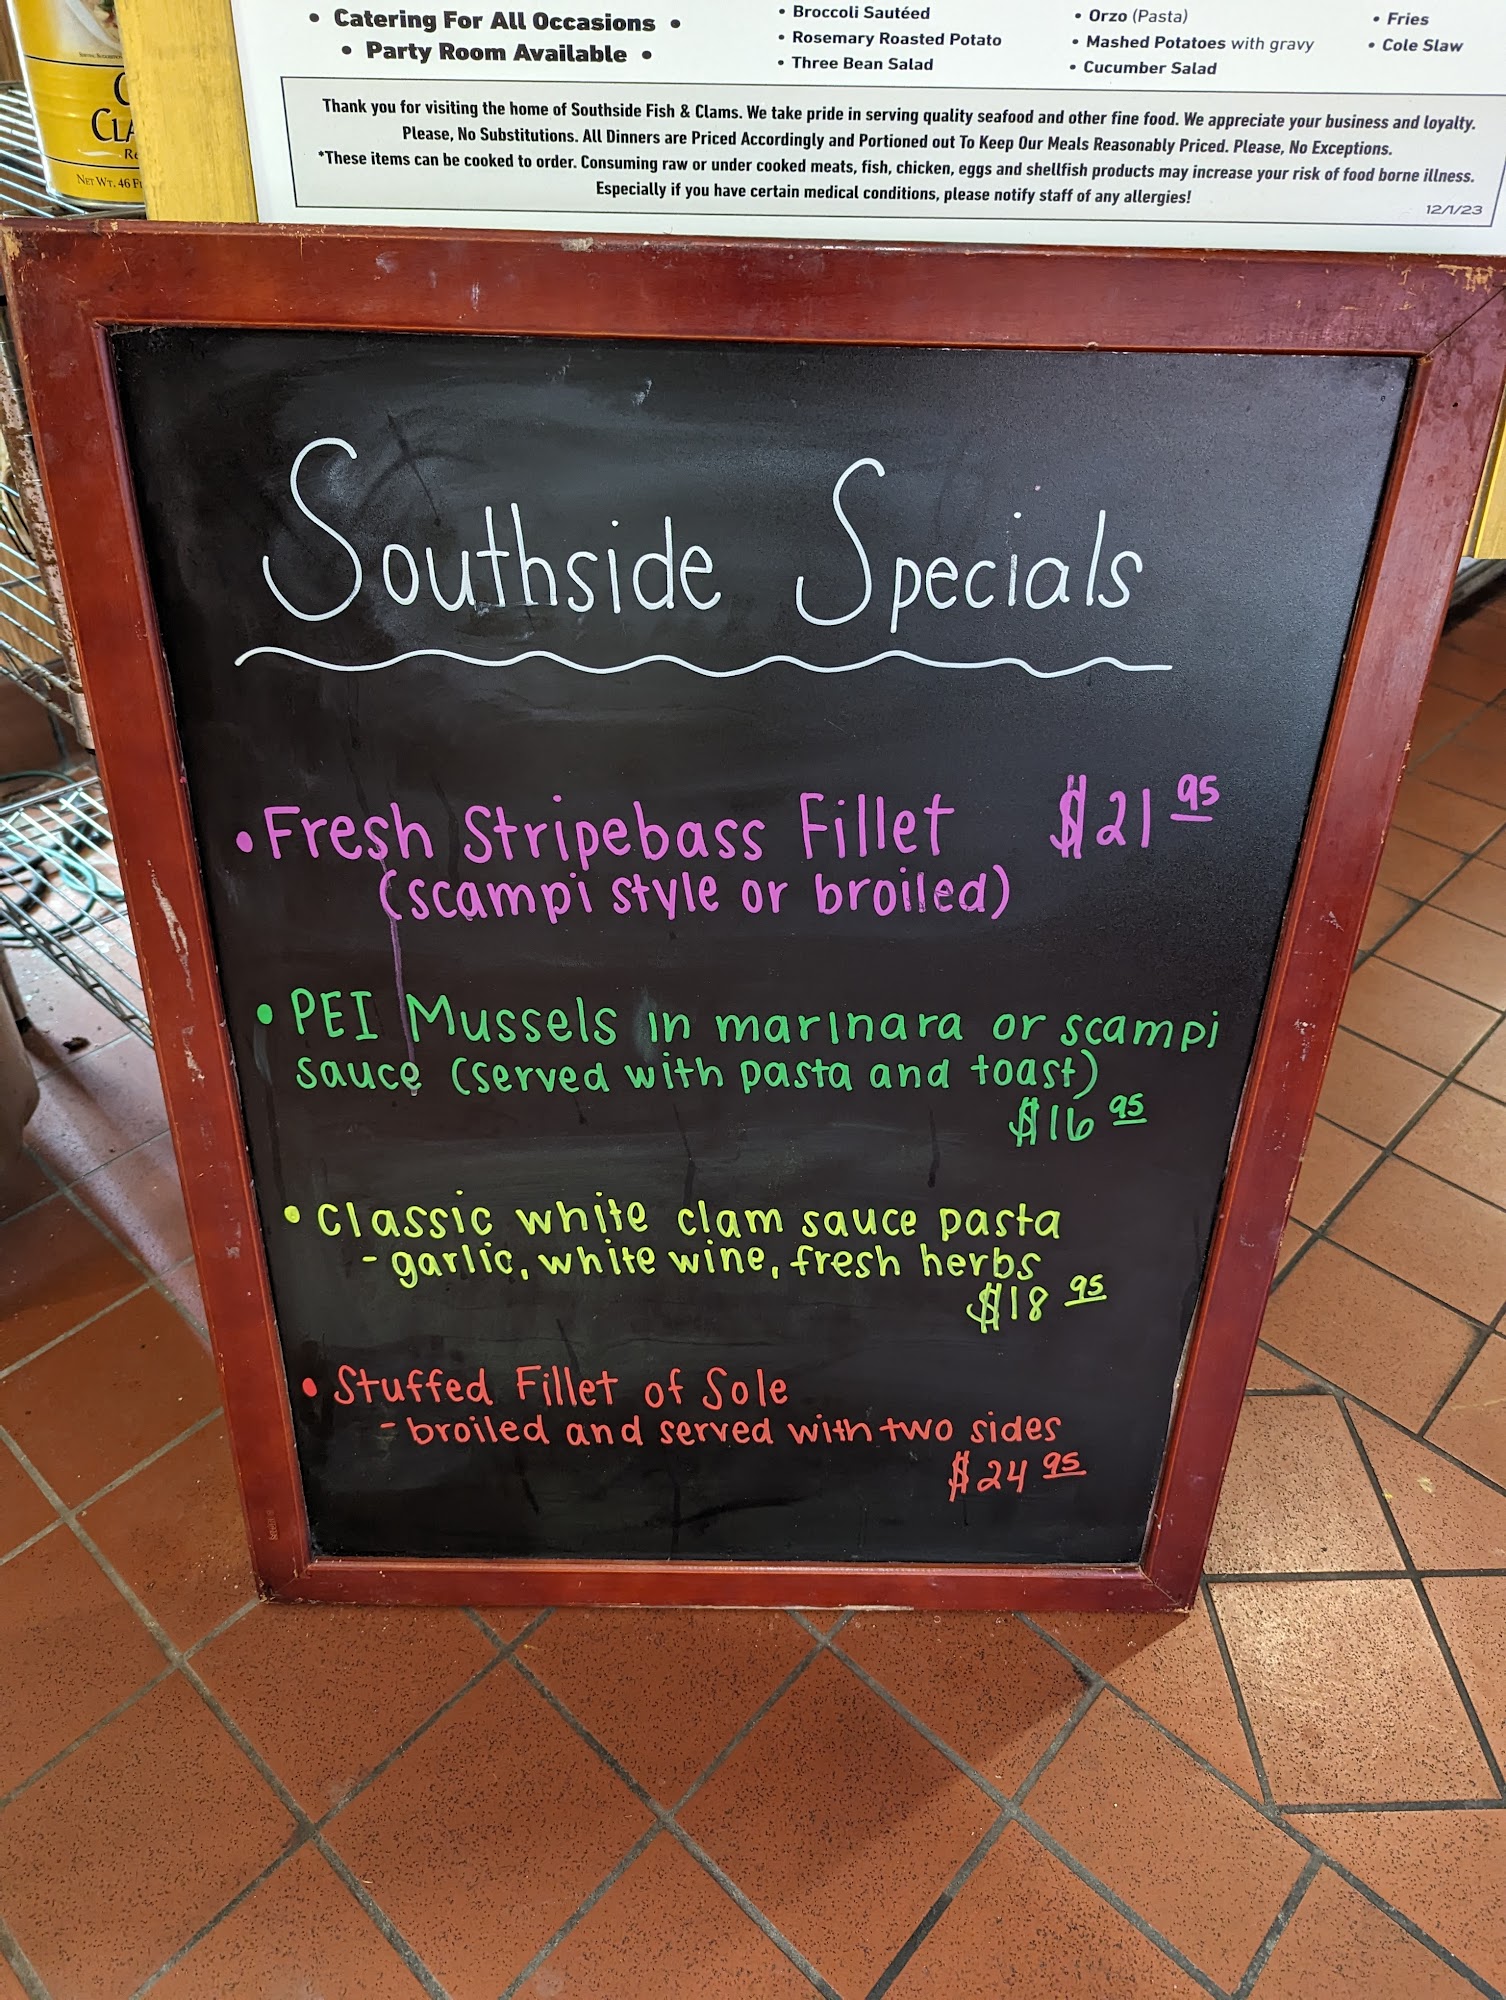 • Catering For All Occasions •
• Party Room Available •
• Broccoli Sautéed
• Rosemary Roasted Potato
• Three Bean Salad
• Orzo (Pasta)
• Mashed Potatoes with gravy
• Cucumber Salad
• Fries
• Cole Slaw
Thank you for visiting the home of Southside Fish & Clams. We take pride in serving quality seafood and other fine food. We appreciate your business and loyalty.
Please, No Substitutions. All Dinners are Priced Accordingly and Portioned out To Keep Our Meals Reasonably Priced. Please, No Exceptions.
*These items can be cooked to order. Consuming raw or under cooked meats, fish, chicken, eggs and shellfish products may increase your risk of food borne illness.
Especially if you have certain medical conditions, please notify staff of any allergies!
12/1/23
NET WT. 46
Southside Specials
• Fresh Stripebass Fillet $21 95
(scampi style or broiled)
• PEI Mussels in marinara or scampi
sauce (served with pasta and toast)
$16 95
• Classic white clam sauce pasta
- garlic, white wine, fresh herbs
$18 95
• Stuffed Fillet of Sole
- broiled and served with two sides
$24 95